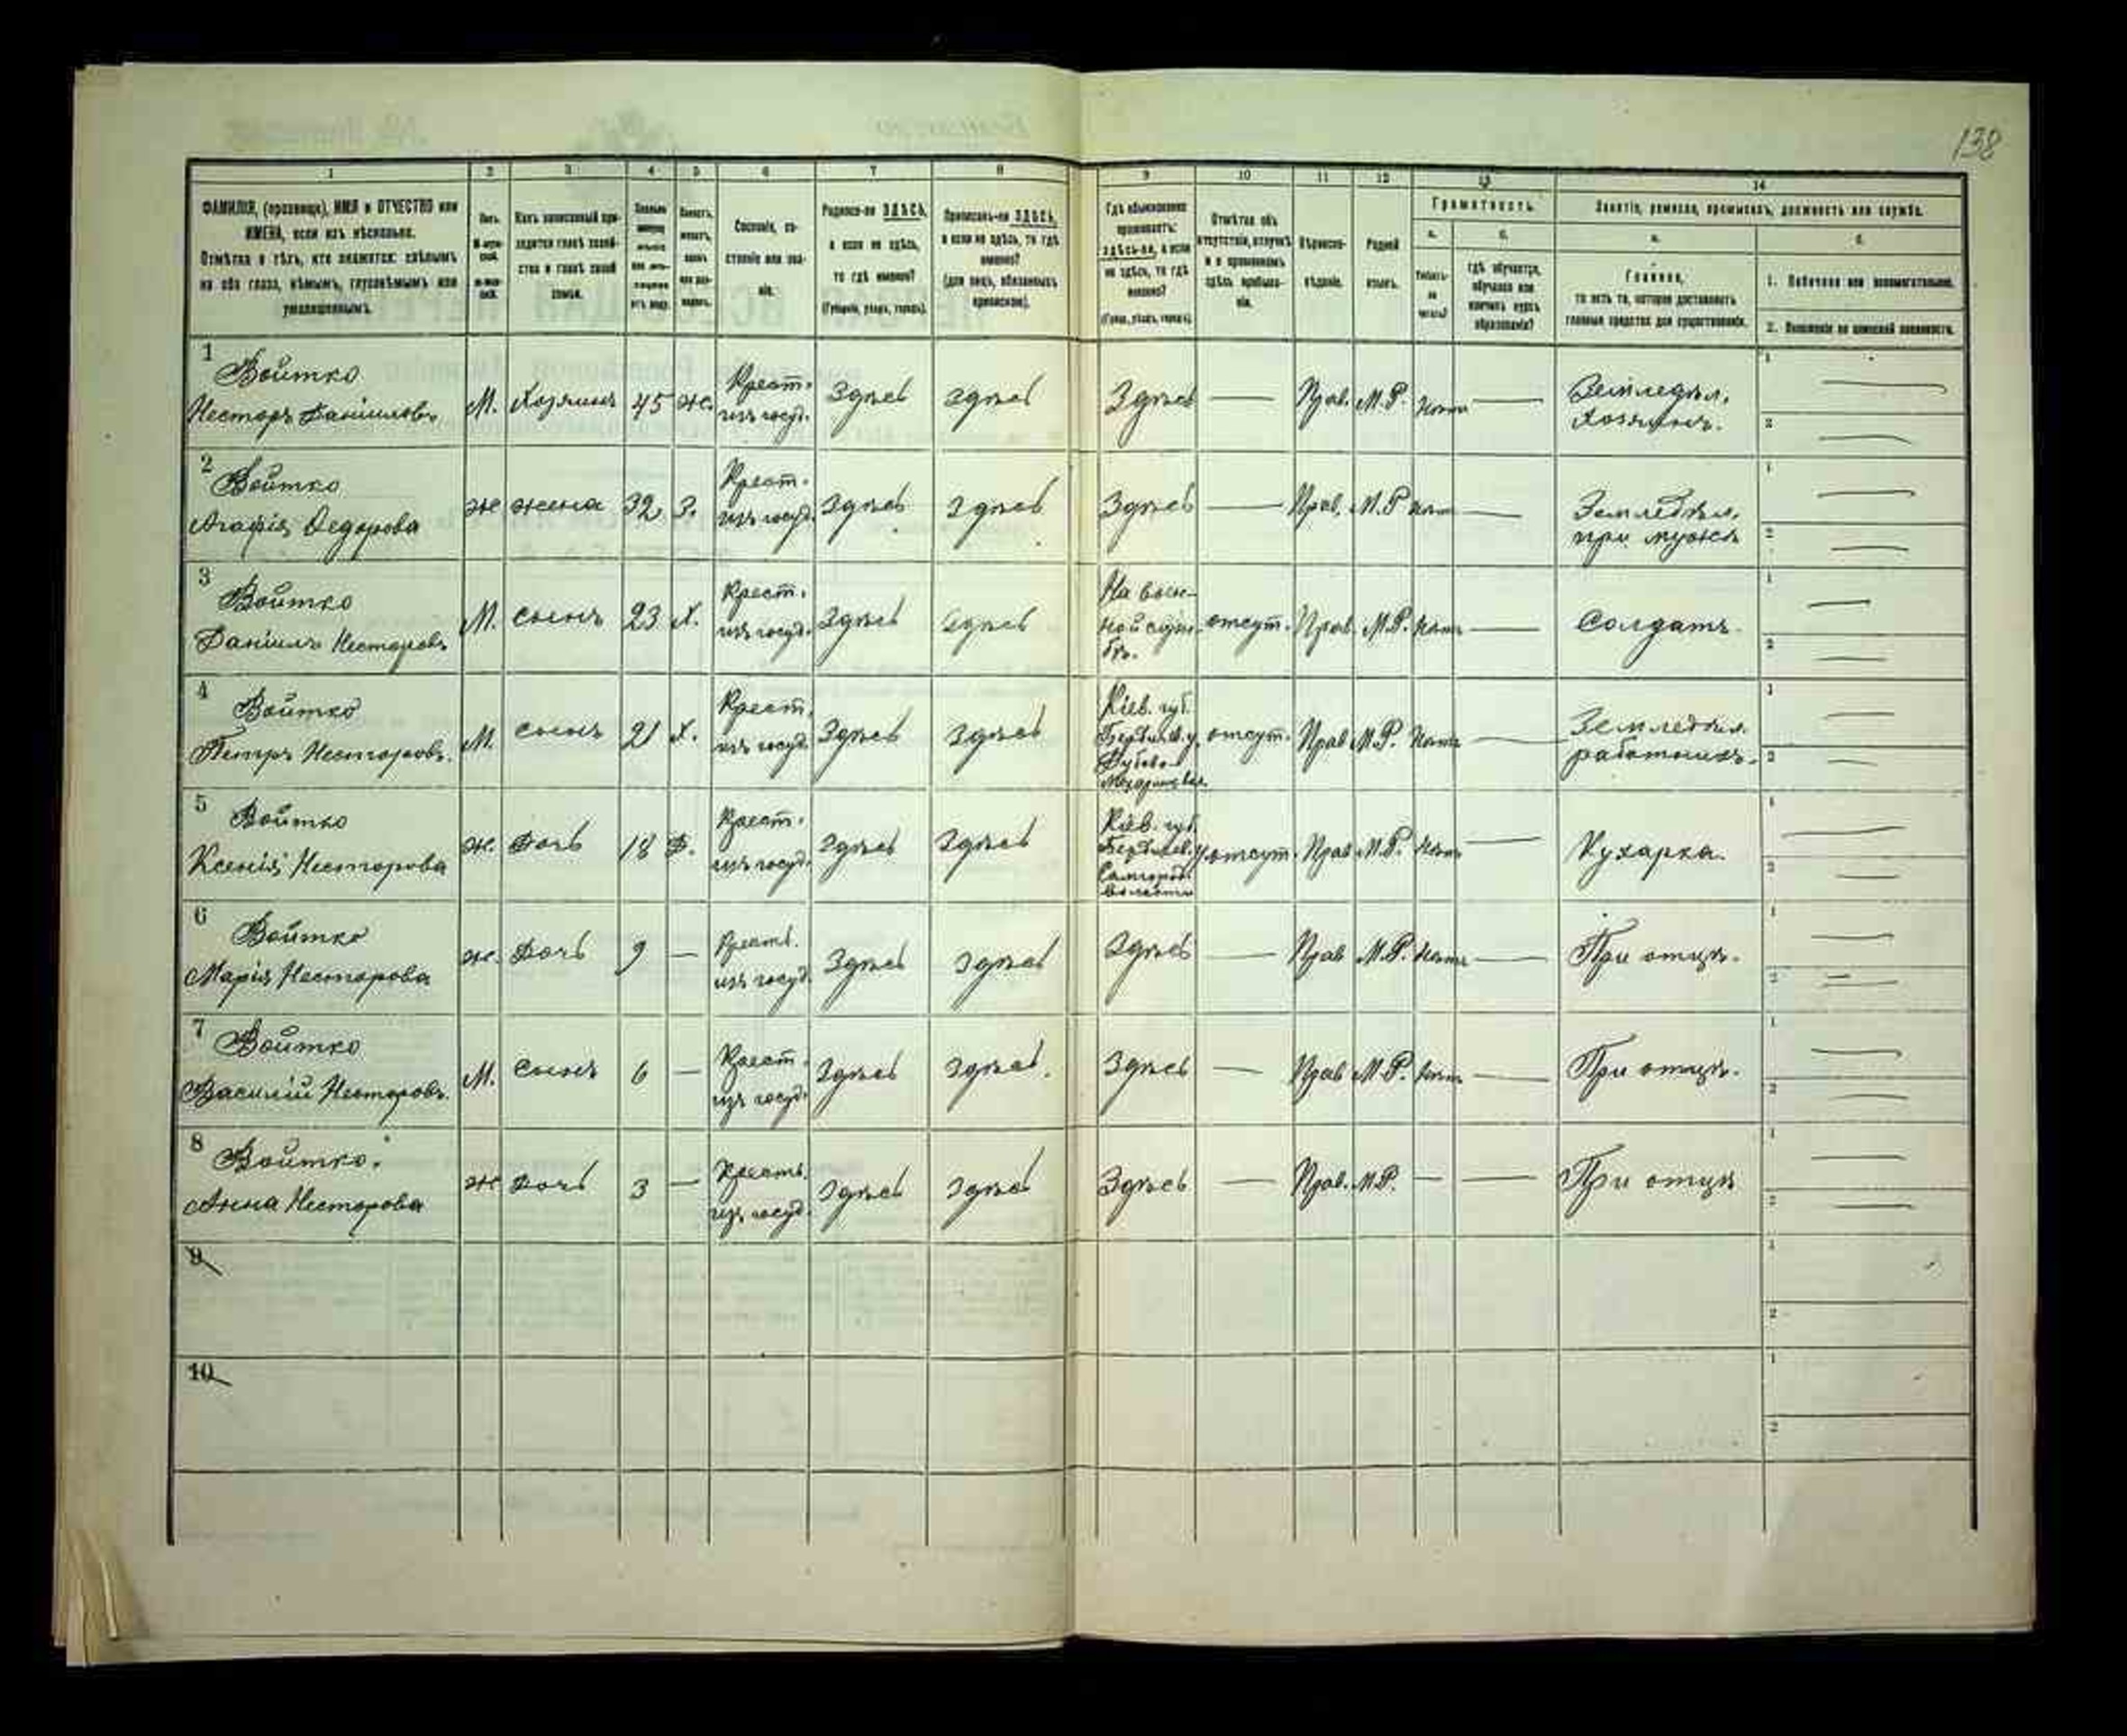 138
1 2 3 4 5 6 7 8 9 10 11 12 13 14
ФАМИЛІЯ, (прозвище), ИМЯ и ОТЧЕСТВО или
ИМЕНА, если ихъ нѣсколько.
Отмѣтка о тѣхъ, кто окажется: слѣпымъ
на оба глаза, нѣмымъ, глухонѣмымъ или
умалишеннымъ.
Полъ.
Какъ записанный при-
ходится главѣ хозяй-
ства и главѣ своей
семьи.
Сословіе, со-
стояніе или зва-
ніе.
Родился-ли ЗДѢСЬ,
а если не здѣсь,
то гдѣ именно?
(Губернія, уѣздъ, городъ).
Приписанъ-ли ЗДѢСЬ,
а если не здѣсь, то гдѣ
именно?
(для лицъ, обязанныхъ
припискою).
Гдѣ обыкновенно
проживаетъ:
здѣсь-ли, а если
не здѣсь, то гдѣ
именно?
(Губ., уѣздъ, городъ).
Отмѣтка объ
отсутствіи, отлучкѣ
и о временномъ
здѣсь пребыва-
ніи.
Вѣроиспо-
вѣданіе.
Родной
языкъ.
Грамотность.
а. б.
Умѣетъ-
ли
читать?
гдѣ обучается,
обучался или
кончилъ курсъ
образованія?
Занятіе, ремесло, промыселъ, должность или служба.
а. б.
Главное,
то есть то, которое доставляетъ
главныя средства для существованія.
1. Побочное или вспомогательное.
2. Положеніе по воинской повинности.
1 Войтко
Несторъ Даніиловъ М. Хозяинъ 45 ж. Крест. изъ госуд. Здѣсь Здѣсь Здѣсь — Прав. М.Р. Нѣтъ — Земледѣл. Хозяинъ. 1 — 2 —
2 Войтко
Агафія Федорова ж жена 32 З. Крест. изъ госуд. Здѣсь Здѣсь Здѣсь — Прав. М.Р Нѣтъ — Земледѣл. при мужѣ 1 — 2 —
3 Войтко
Даніилъ Несторовъ М. сынъ 23 Х. Крест. изъ госуд. Здѣсь Здѣсь На воен-ной служ-бѣ. отсут. Прав. М.Р. Нѣтъ — Солдатъ. 1 — 2 —
4 Войтко
Петръ Несторовъ. М. сынъ 21 Х. Крест. изъ госуд. Здѣсь Здѣсь Кіев. губ. Бердич. у. отсут. Прав М.Р. Нѣтъ — Земледѣл. работникъ. 1 — 2 —
5 Войтко
Ксенія Несторова ж. Дочь 18 Д. Крест. изъ госуд. Здѣсь Здѣсь Кіев. губ. Бердичев. у Самгород. волости отсут. Прав М.Р. Нѣтъ — Кухарка. 1 — 2 —
6 Войтко
Марія Несторова ж. Дочь 9 — Крест. изъ госуд. Здѣсь Здѣсь Здѣсь — Прав М.Р. Нѣтъ — При отцѣ. 1 — 2 —
7 Войтко
Василій Несторовъ. М. сынъ 6 — Крест. изъ госуд. Здѣсь Здѣсь. Здѣсь — Прав М.Р. Нѣтъ — При отцѣ. 1 — 2 —
8 Войтко.
Анна Несторова ж Дочь 3 — Крест. изъ госуд. Здѣсь Здѣсь Здѣсь — Прав. М.Р. — — При отцѣ 1 — 2 —
9 1
2
10 1
2